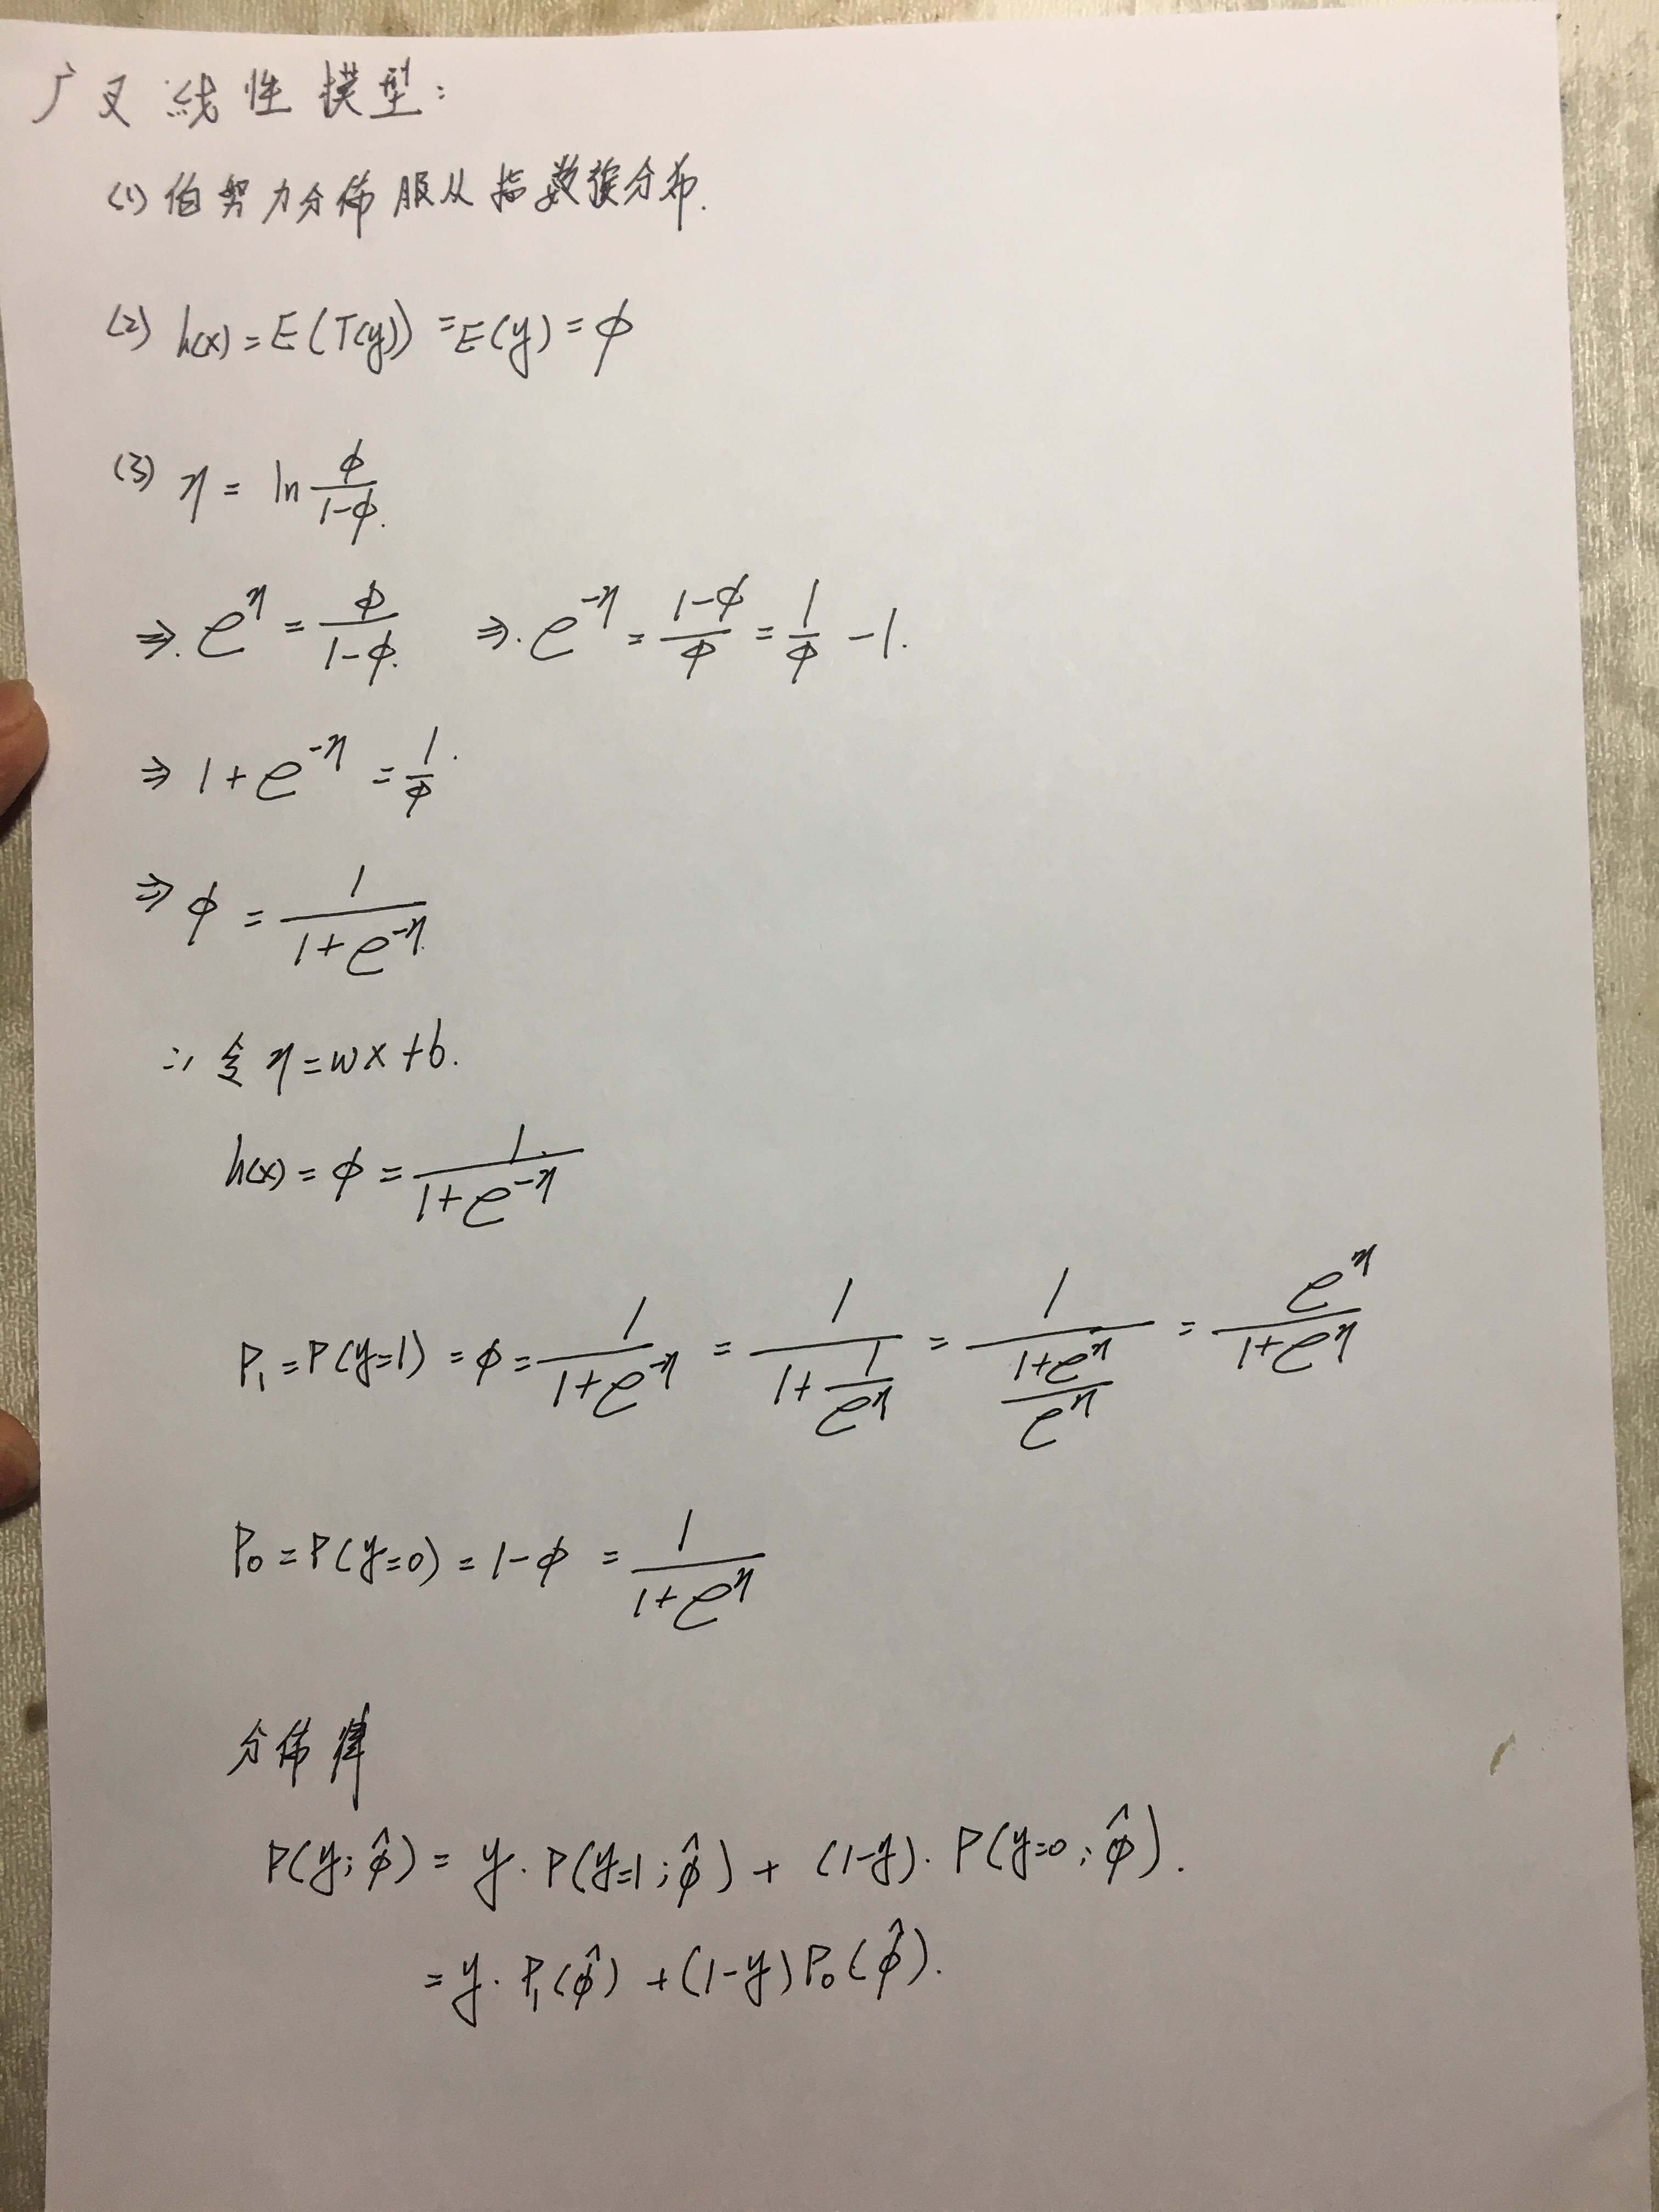 广义线性模型：
(1) 伯努力分佈服从指数族分布.
(2) h(x) = E(T(y)) = E(y) = φ
(3) η = ln φ/(1-φ).
⇒. e^η = φ/(1-φ). ⇒. e^{-η} = (1-φ)/φ = 1/φ - 1.
⇒ 1 + e^{-η} = 1/φ.
⇒ φ = 1/(1+e^{-η}).
∴ 令 η = wx + b.
h(x) = φ = 1/(1+e^{-η})
P₁ = P(y=1) = φ = 1/(1+e^{-η}) = 1/(1+1/e^η) = 1/((1+e^η)/e^η) = e^η/(1+e^η)
P₀ = P(y=0) = 1-φ = 1/(1+e^η)
分佈律
P(y; φ̂) = y · P(y=1; φ̂) + (1-y) · P(y=0; φ̂).
= y · P₁(φ̂) + (1-y) P₀(φ̂).